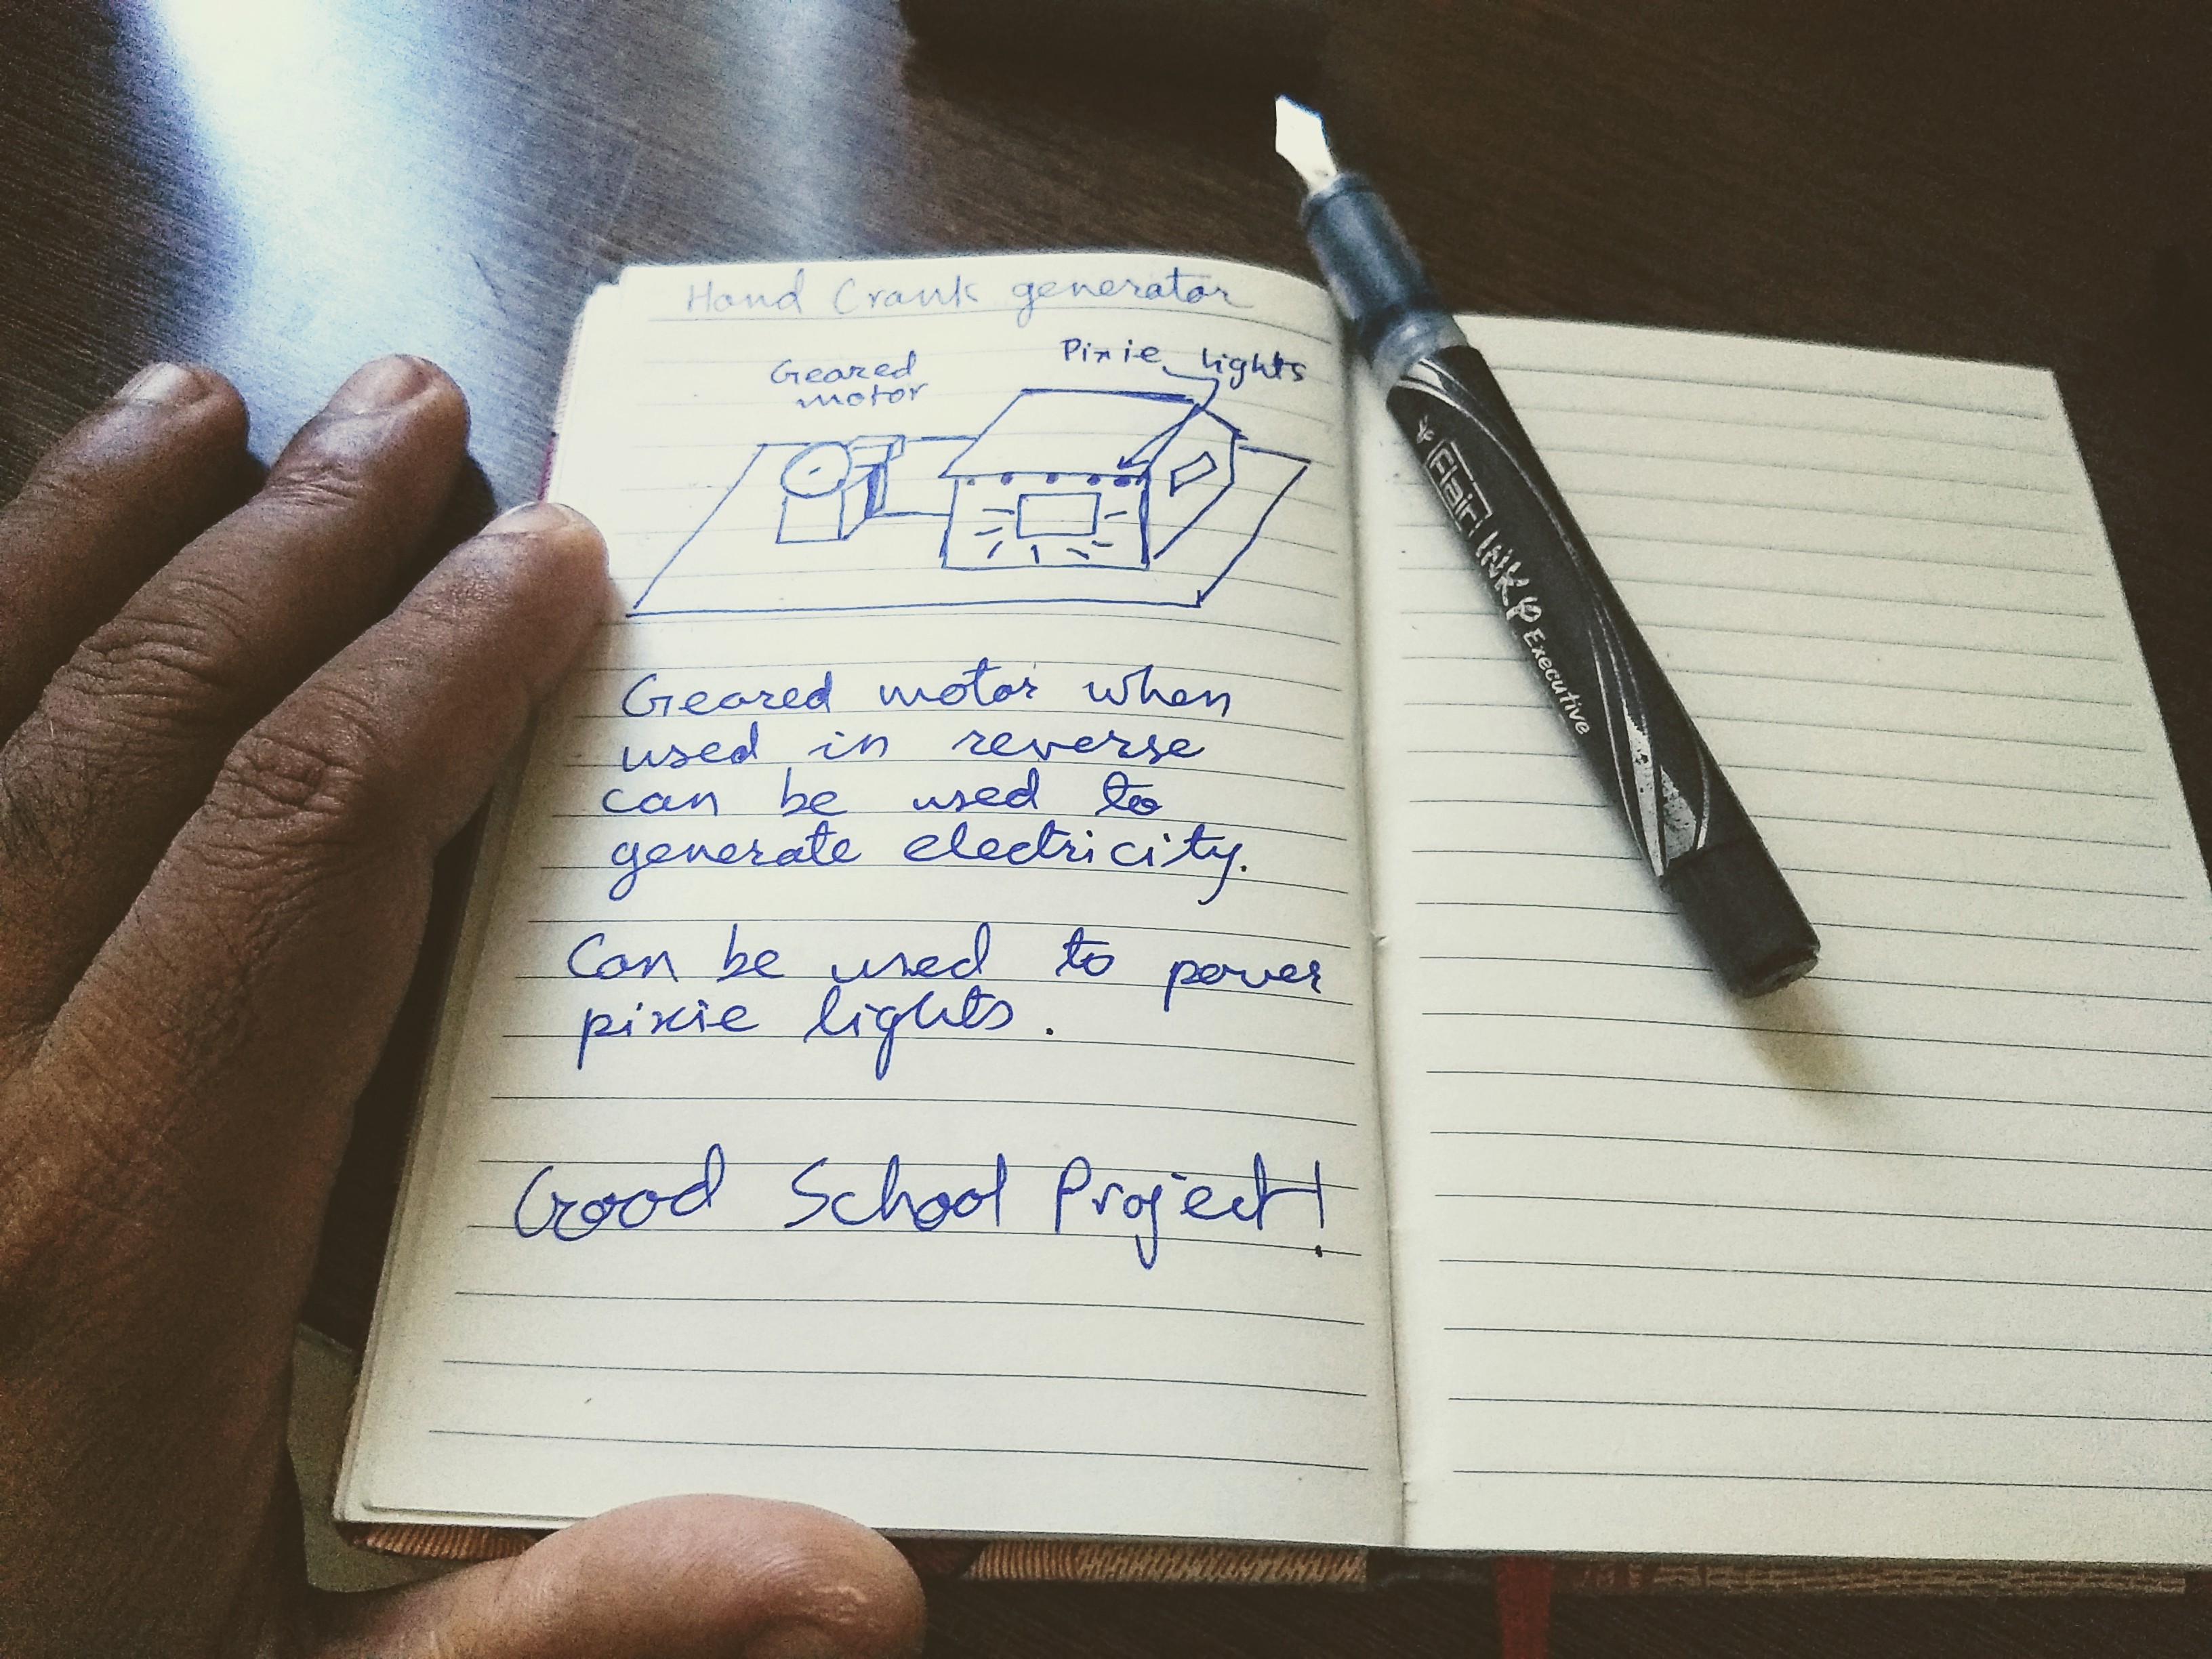 Hand Crank generator
Geared
motor
Pixie lights
Geared motor when
used in reverse
can be used to
generate electricity.
Can be used to power
pixie lights.
Good School Project!
Flair INKY Executive